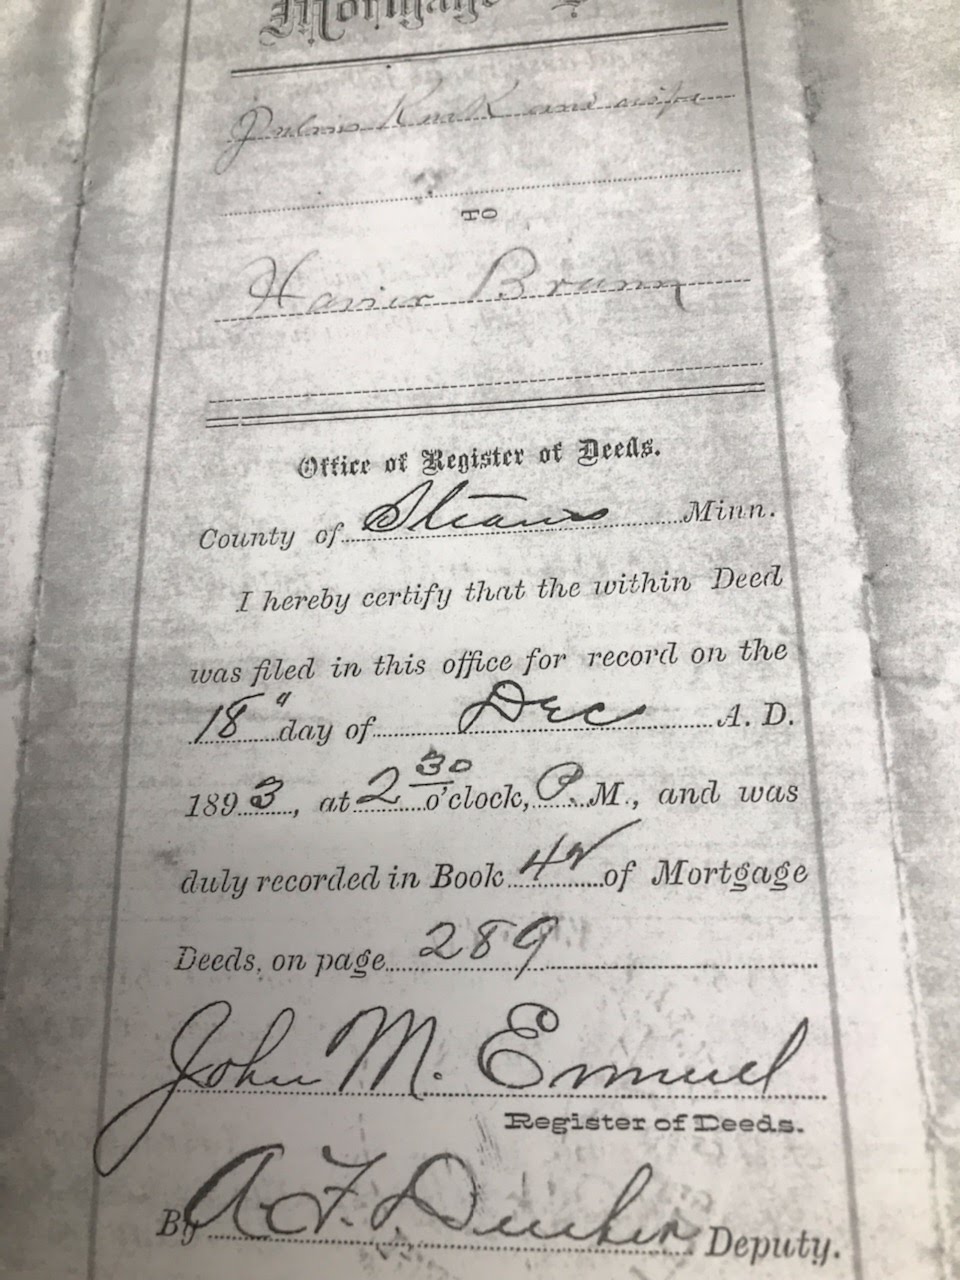 Mortgage
Julius Kurk and wife
TO
Xavier Braun
Office of Register of Deeds.
County of Stearns Minn.
I hereby certify that the within Deed
was filed in this office for record on the
18" day of Dec A. D.
1893, at 2 30 o'clock, P. M., and was
duly recorded in Book 42 of Mortgage
Deeds, on page 289
John M. Emmel
Register of Deeds.
By A. F. Deputy.